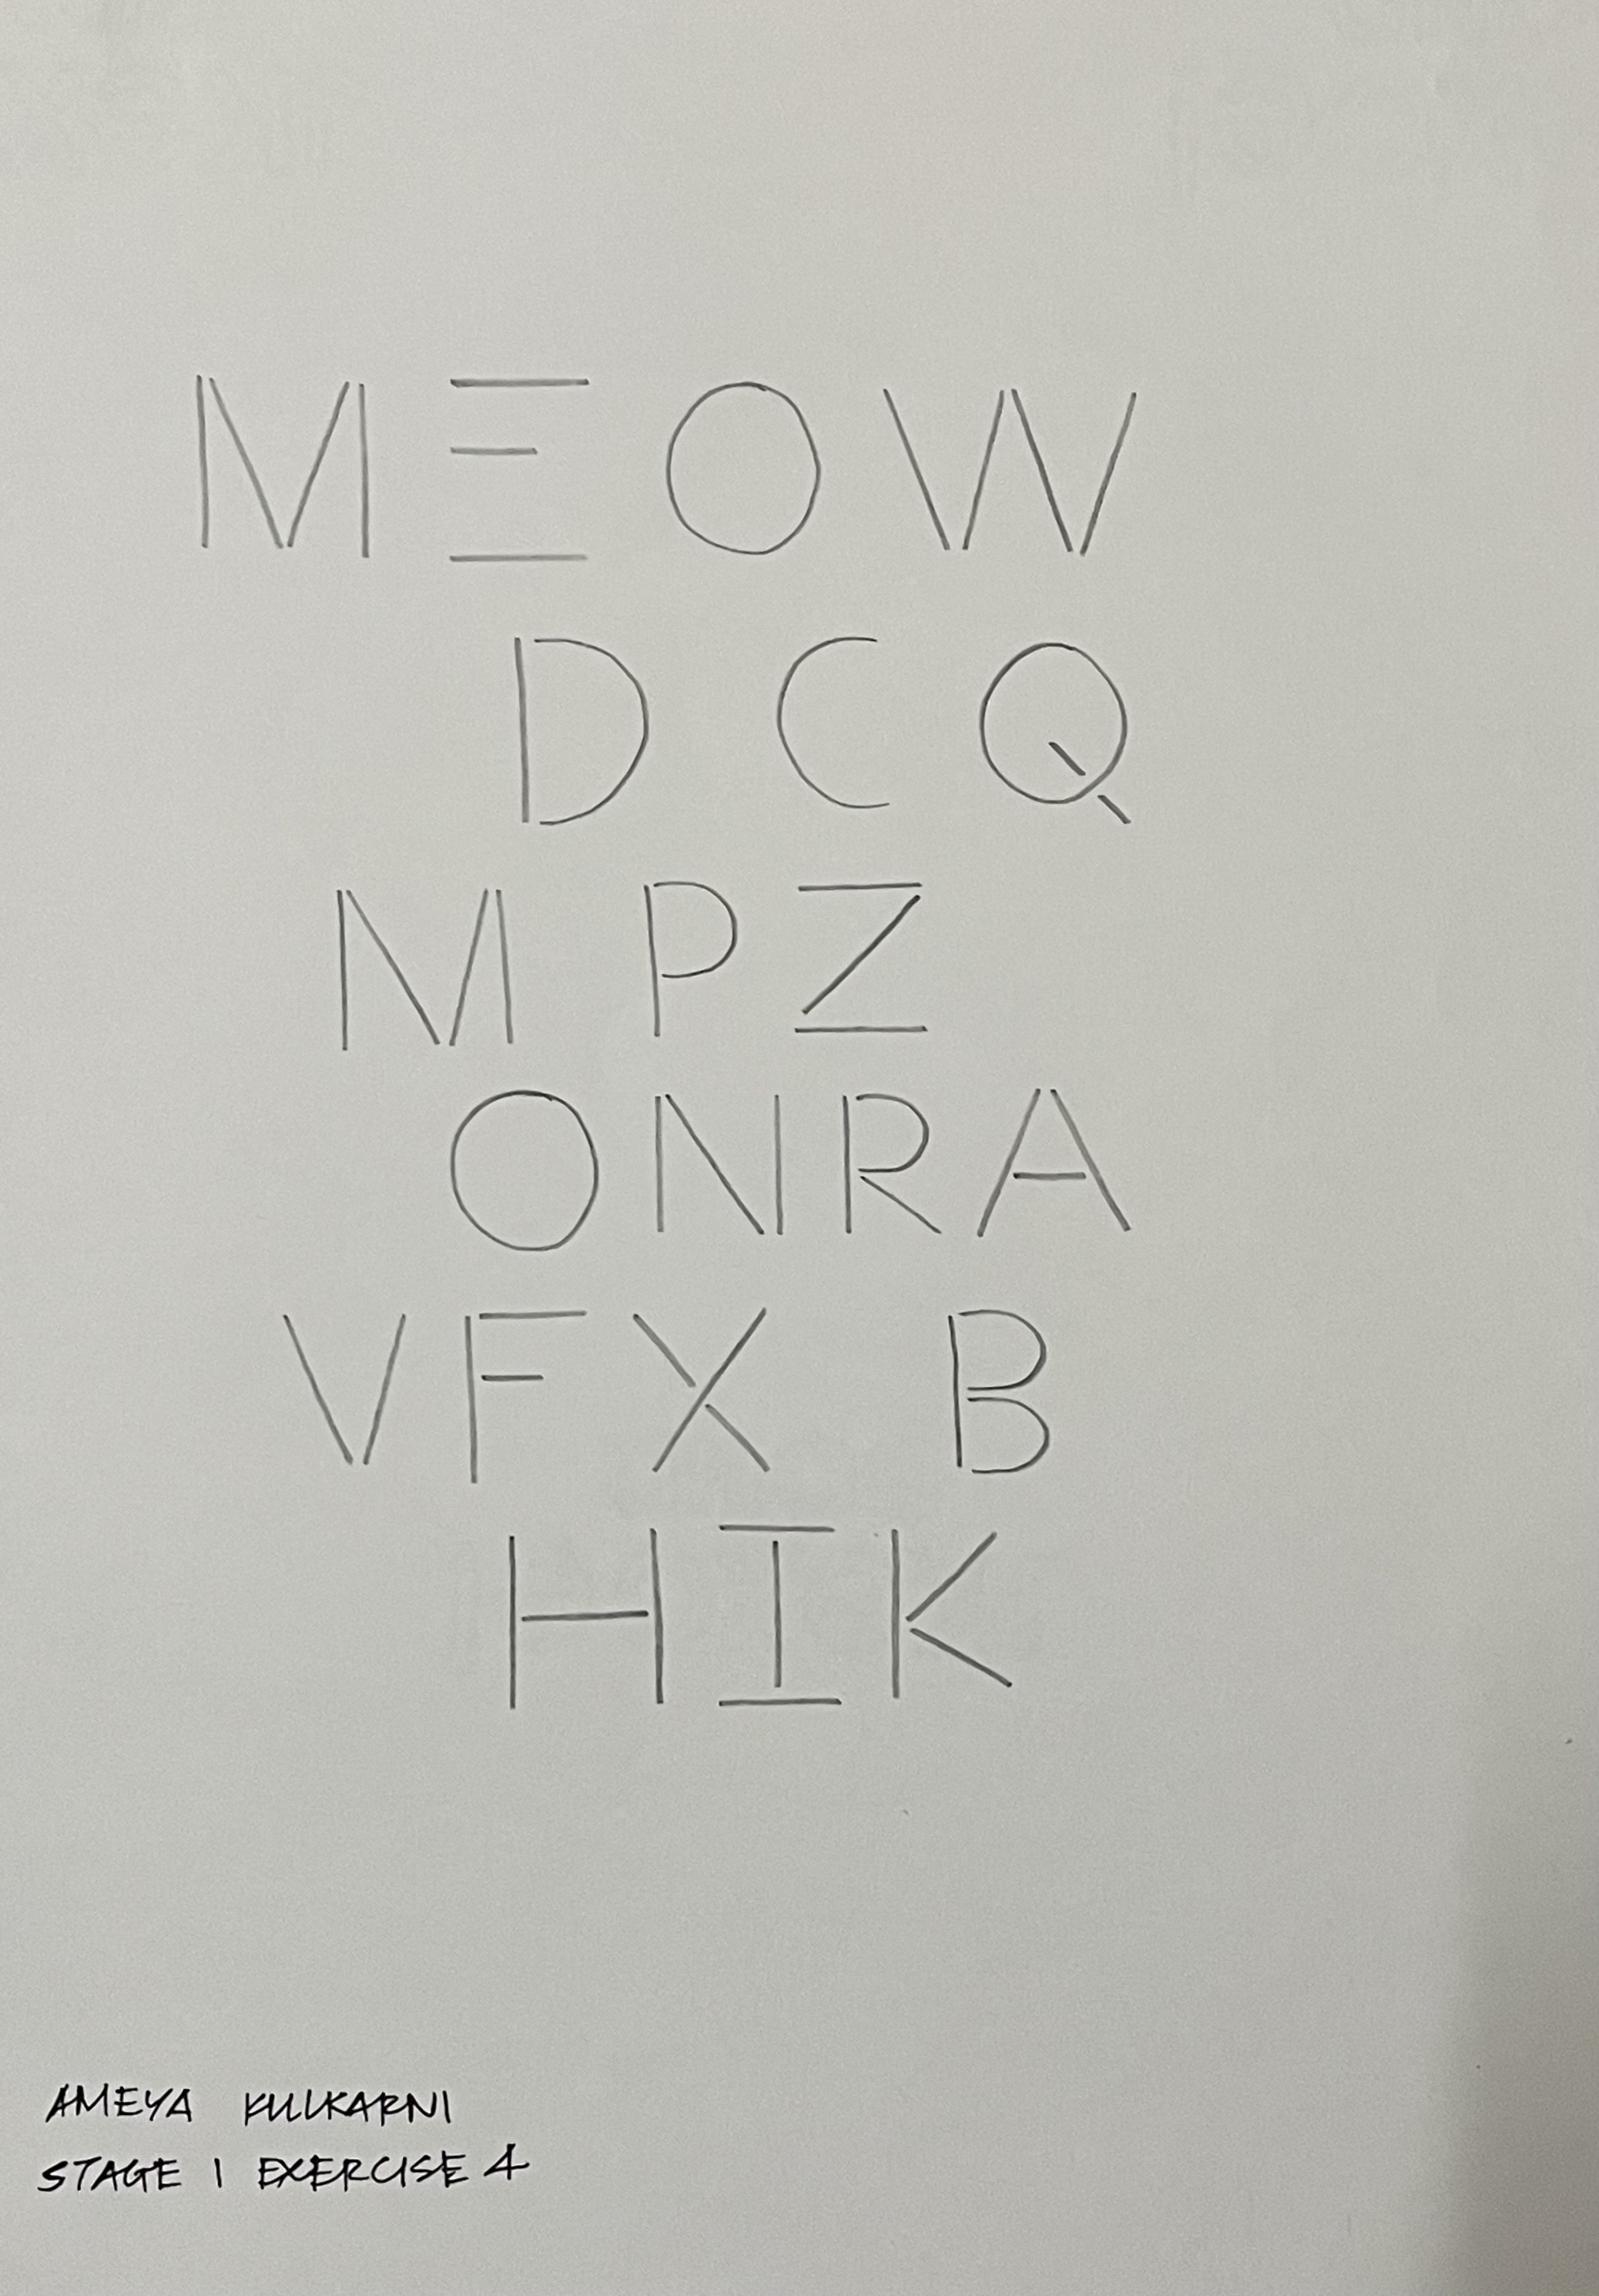 MEOW
D C Q
M P Z
ONRA
VFX B
HIK
AMEYA KULKARNI
STAGE 1 EXERCISE 4